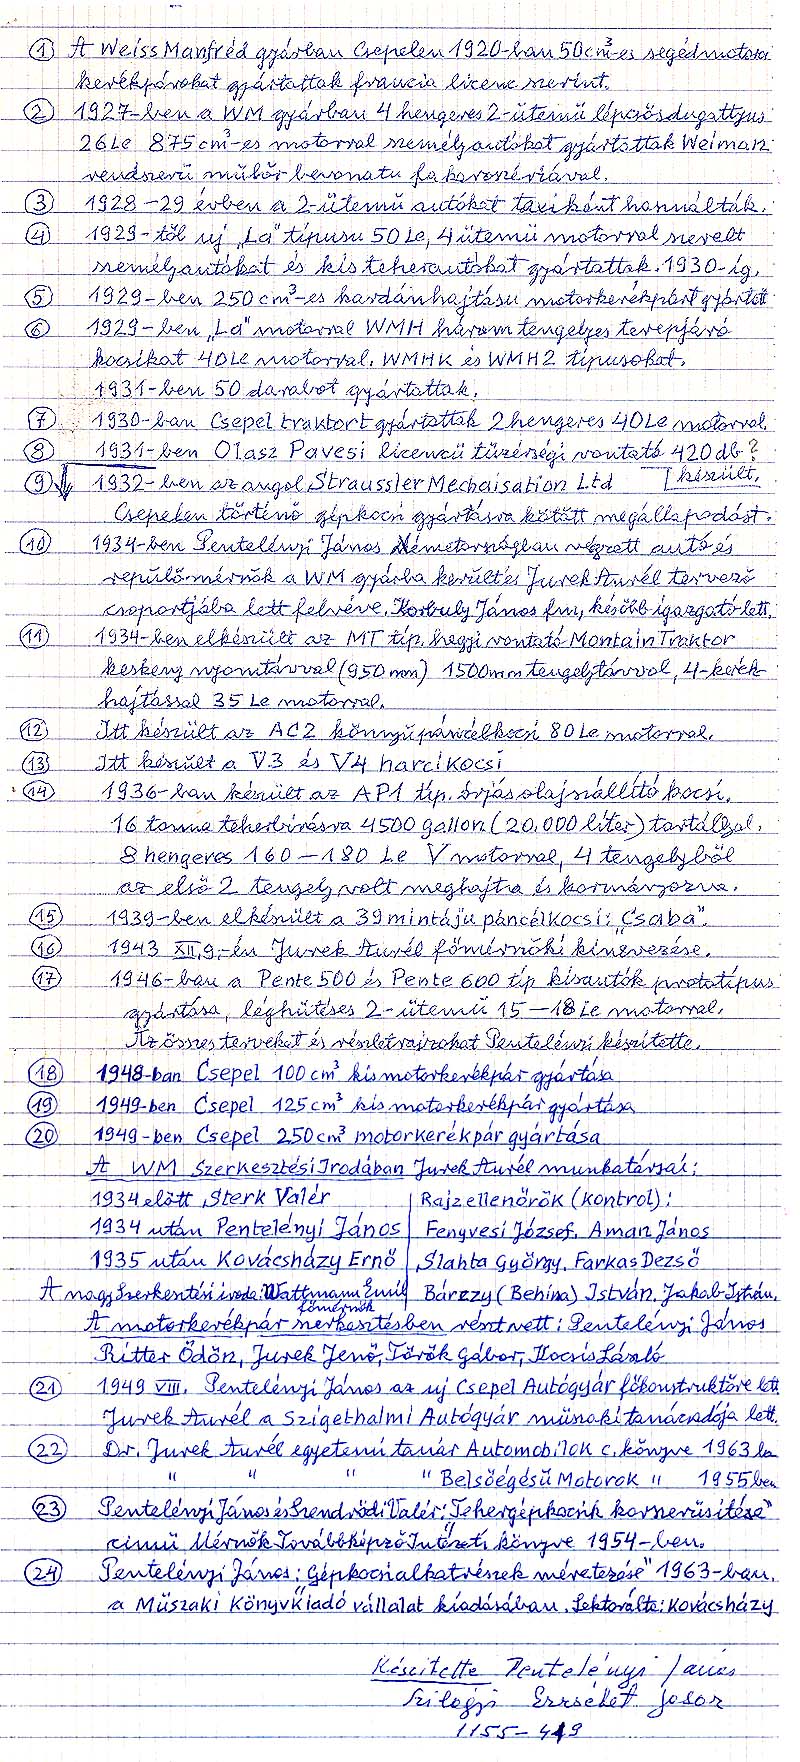 ① A Weiss Manfréd gyárban Csepelen 1920-ban 50cm³-es segédmotoros
kerékpárokat gyártottak francia licenc szerint.
② 1927-ben a WM gyárban 4 hengeres 2-ütemű lépcsősdugattyus
26Le 875cm³-es motorral személyautókat gyártottak Weiman
rendszerű műbőr bevonatu fakarosszériával.
③ 1928-29 évben a 2-ütemű autókat taxiként használták.
④ 1929-től uj „La" típusu 50Le, 4 ütemű motorral szerelt
személyautókat és kis teherautókat gyártottak. 1930-ig.
⑤ 1929-ben 250cm³-es kardánhajtásu motorkerékpárt gyártott
⑥ 1929-ben „La" motorral WMH három tengelyes terepjáró
kocsikat 40Le motorral. WMHK és WMH2 típusokat.
1931-ben 50 darabot gyártottak.
⑦ 1930-ban Csepel traktort gyártottak 2hengeres 40Le motorral.
⑧ 1931-ben Olasz Pavesi licencü tüzérségi vontató 420 db?
készült.
⑨ 1932-ben az angol Straussler Mechaisation Ltd
Csepelen történő gépkocsi gyártásra kötött megállapodást.
⑩ 1934-ben Pentelényi János Németországban végzett autó és
repülőmérnök a WM gyárba került és Jurek Aurél tervező
csoportjába lett felvéve. Korbuly János fm, később igazgató lett.
⑪ 1934-ben elkészült az MT tip. hegyi vontató Montain Traktor
keskeny nyomtávval (950 mm) 1500mm tengelytávval, 4-kerék-
hajtással 35 Le motorral.
⑫ Itt készült az AC2 könnyű páncélkocsi 80Le motorral.
⑬ Itt készült a V3 és V4 harcikocsi
⑭ 1936-ban készült az AP1 tip. óriás olajszállító kocsi.
16 tonna teherbírásra 4500 gallon (20.000 liter) tartállyal.
8 hengeres 160-180 Le V motorral, 4 tengelyből
az első 2 tengely volt meghajtva és kormányozva.
⑮ 1939-ben elkészült a 39 mintáju páncélkocsi: „Csaba".
⑯ 1943 XII, 9.-én Jurek Aurél főmérnöki kinevezése.
⑰ 1946-ban a Pente 500 és Pente 600 tip kisautók prototípus
gyártása, léghűtéses 2-ütemű 15-18Le motorral.
Az összes terveket és részletrajzokat Pentelényi készítette.
⑱ 1948-ban Csepel 100cm³ kismotorkerékpár gyártása
⑲ 1949-ben Csepel 125cm³ kis motorkerékpár gyártása
⑳ 1949-ben Csepel 250cm³ motorkerékpár gyártása
A WM Szerkesztési Irodában Jurek Aurél munkatársai:
1934 előtt Sterk Valér
1934 után Pentelényi János
1935 után Kovácsházy Ernő
A nagy Szerkesztési iroda: Wattmann Emil
főmérnök
Rajzellenőrök (kontrol):
Fenyvesi József, Aman János
Slahta György. Farkas Dezső
Bárczy (Behina) István. Jakab István.
A motorkerékpár szerkesztésben résztvett: Pentelényi János
Ritter Ödön, Jurek Jenő, Török Gábor, Kocsis László
㉑ 1949 VIII. Pentelényi János az uj Csepel Autógyár főkonstruktőre lett
Jurek Aurél a Szigethalmi Autógyár műszaki tanácsadója lett.
㉒ Dr. Jurek Aurél egyetemi tanár Automobilok c. könyve 1963 ba
" " " " Belsőégésű Motorok " 1955 ben
㉓ Pentelényi János és Szendrődi Valér: „Tehergépkocsik korszerűsítése"
című Mérnök Továbbképző Intézeti könyve 1954-ben.
㉔ Pentelényi János: „Gépkocsialkatrészek méretezése" 1963-ban.
a Műszaki Könyvkiadó vállalat kiadásában. Lektorálta: Kovácsházy
Készítette Pentelényi János